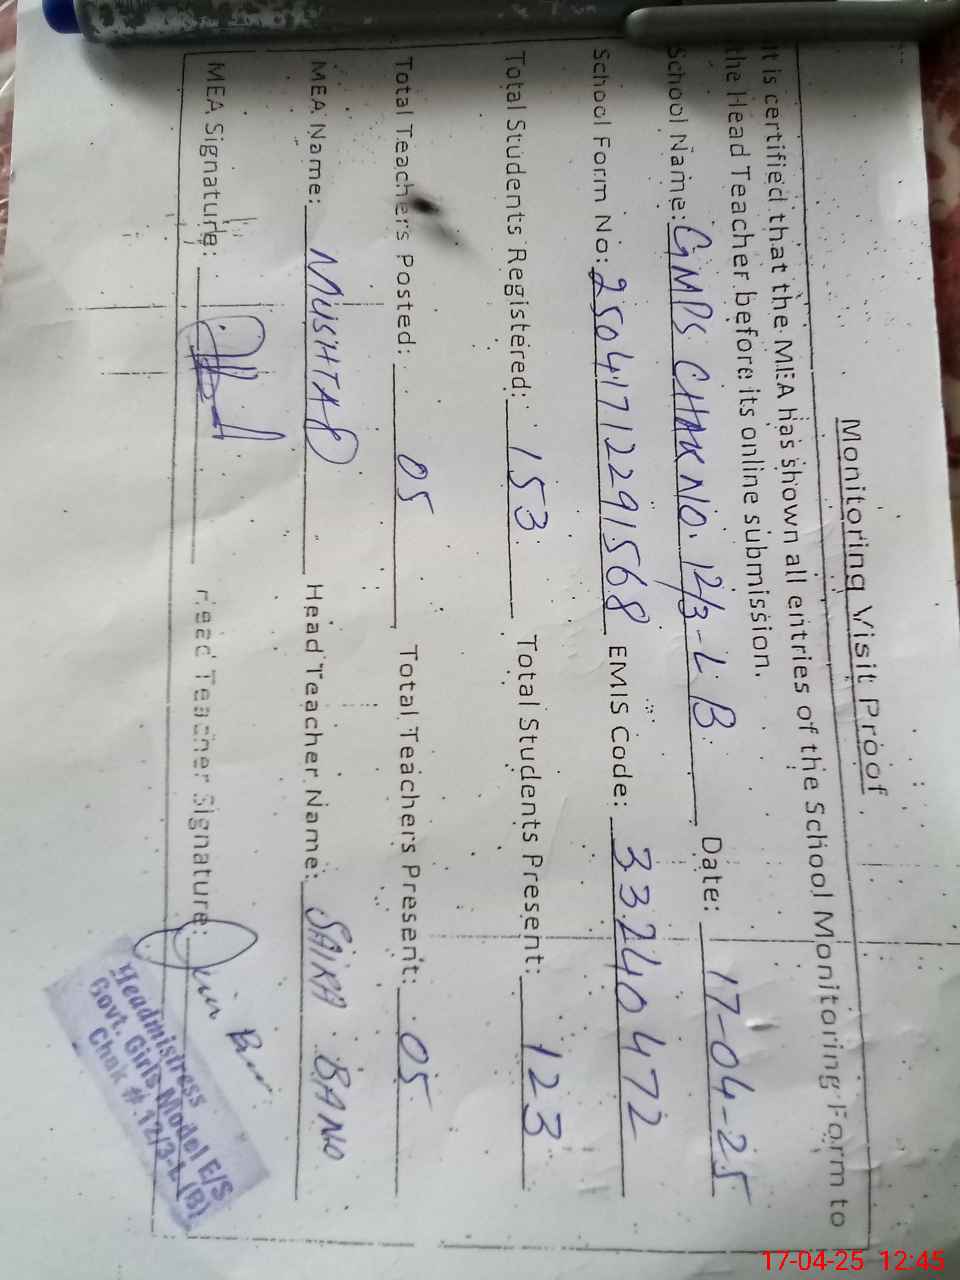 Monitoring Visit Proof
It is certified that the MEA has shown all entries of the School Monitoring Form to
the Head Teacher before its online submission.
School Name: GMPS CHAK NO. 12/3-L B Date: 17-04-25
School Form No: 25041712291568 EMIS Code: 33240472
Total Students Registered: 153 Total Students Present: 123
Total Teachers Posted: 05 Total Teachers Present: 05
MEA Name: MUSHTAQ Head Teacher Name: SAIRA BANO
MEA Signature: Head Teacher Signature:
Headmistress
Govt. Girls Model E/S
Chak # 12/3-L (B)
17-04-25 12:45